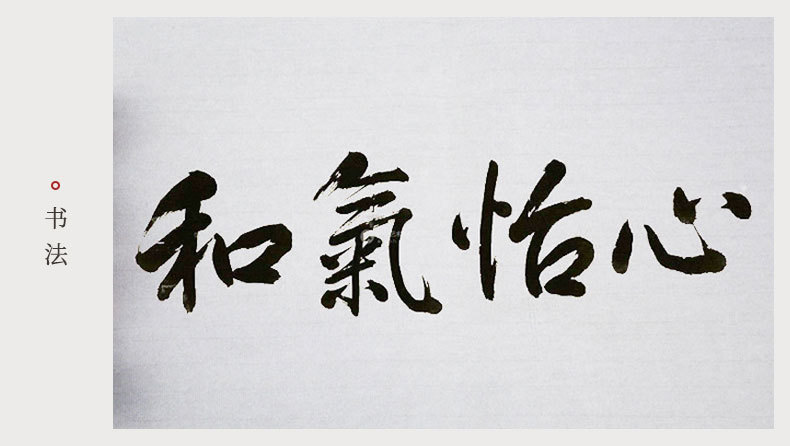 书法
和氣怡心